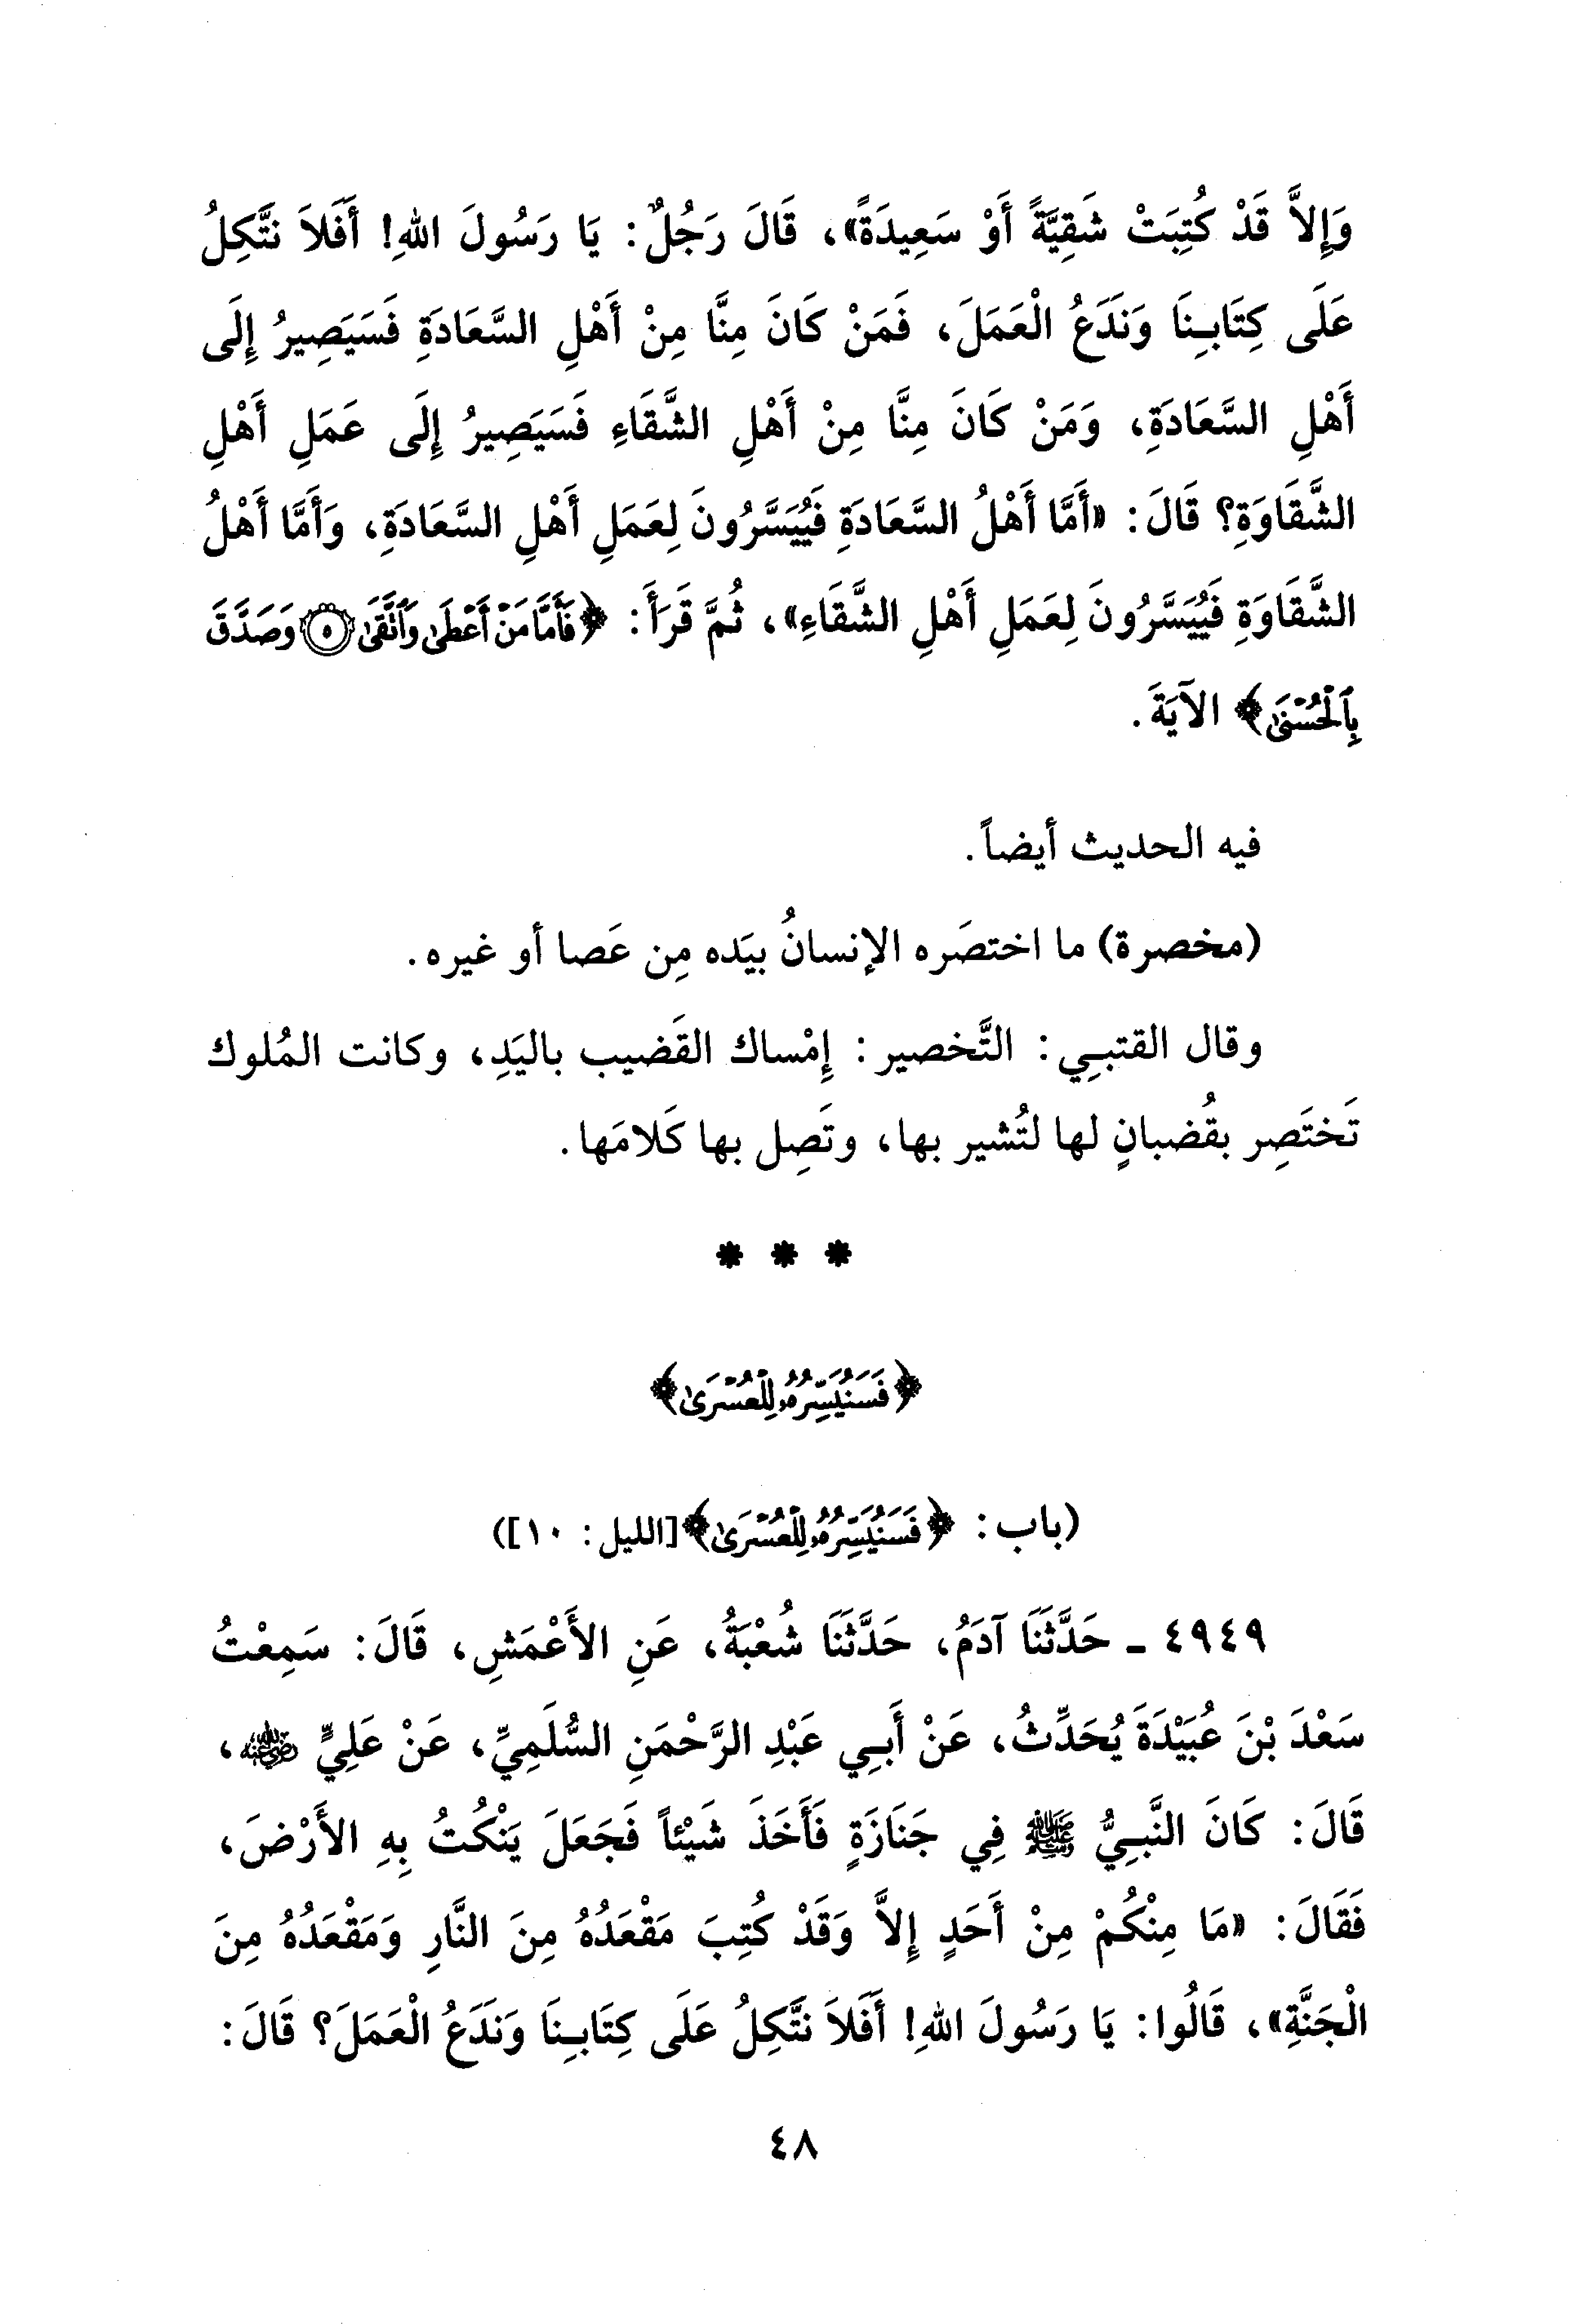 وَإِلاَّ قَدْ كُتِبَتْ شَقِيَّةً أَوْ سَعِيدَةً»، قَالَ رَجُلٌ: يَا رَسُولَ اللهِ! أَفَلاَ نَتَّكِلُ
عَلَى كِتَابِنَا وَنَدَعُ الْعَمَلَ، فَمَنْ كَانَ مِنَّا مِنْ أَهْلِ السَّعَادَةِ فَسَيَصِيرُ إِلَى
أَهْلِ السَّعَادَةِ، وَمَنْ كَانَ مِنَّا مِنْ أَهْلِ الشَّقَاءِ فَسَيَصِيرُ إِلَى عَمَلِ أَهْلِ
الشَّقَاوَةِ؟ قَالَ: «أَمَّا أَهْلُ السَّعَادَةِ فَيُيَسَّرُونَ لِعَمَلِ أَهْلِ السَّعَادَةِ، وَأَمَّا أَهْلُ
الشَّقَاوَةِ فَيُيَسَّرُونَ لِعَمَلِ أَهْلِ الشَّقَاءِ»، ثُمَّ قَرَأَ: ﴿فَأَمَّا مَنْ أَعْطَىٰ وَٱتَّقَىٰ ۝٥ وَصَدَّقَ
بِٱلْحُسْنَىٰ﴾ الآيَةَ.
فيه الحديث أيضاً.
(مخصرة) ما اختصَره الإنسانُ بيَده مِن عَصا أو غيره.
وقال القتبـِي: التَّخصير: إِمْساك القَضيب باليَدِ، وكانت المُلوك
تَختَصِر بقُضبانٍ لها لتُشير بها، وتَصِل بها كَلامَها.
* * *
﴿فَسَنُيَسِّرُهُۥ لِلْعُسْرَىٰ﴾
(باب: ﴿فَسَنُيَسِّرُهُۥ لِلْعُسْرَىٰ﴾[الليل: ١٠])
٤٩٤٩ ـ حَدَّثَنَا آدَمُ، حَدَّثَنَا شُعْبَةُ، عَنِ الأَعْمَشِ، قَالَ: سَمِعْتُ
سَعْدَ بْنَ عُبَيْدَةَ يُحَدِّثُ، عَنْ أَبِي عَبْدِ الرَّحْمَنِ السُّلَمِيِّ، عَنْ عَلِيٍّ رضي الله عنه،
قَالَ: كَانَ النَّبِيُّ ﷺ فِي جَنَازَةٍ فَأَخَذَ شَيْئاً فَجَعَلَ يَنْكُتُ بِهِ الأَرْضَ،
فَقَالَ: «مَا مِنْكُمْ مِنْ أَحَدٍ إِلاَّ وَقَدْ كُتِبَ مَقْعَدُهُ مِنَ النَّارِ وَمَقْعَدُهُ مِنَ
الْجَنَّةِ»، قَالُوا: يَا رَسُولَ اللهِ! أَفَلاَ نَتَّكِلُ عَلَى كِتَابِنَا وَنَدَعُ الْعَمَلَ؟ قَالَ:
٤٨